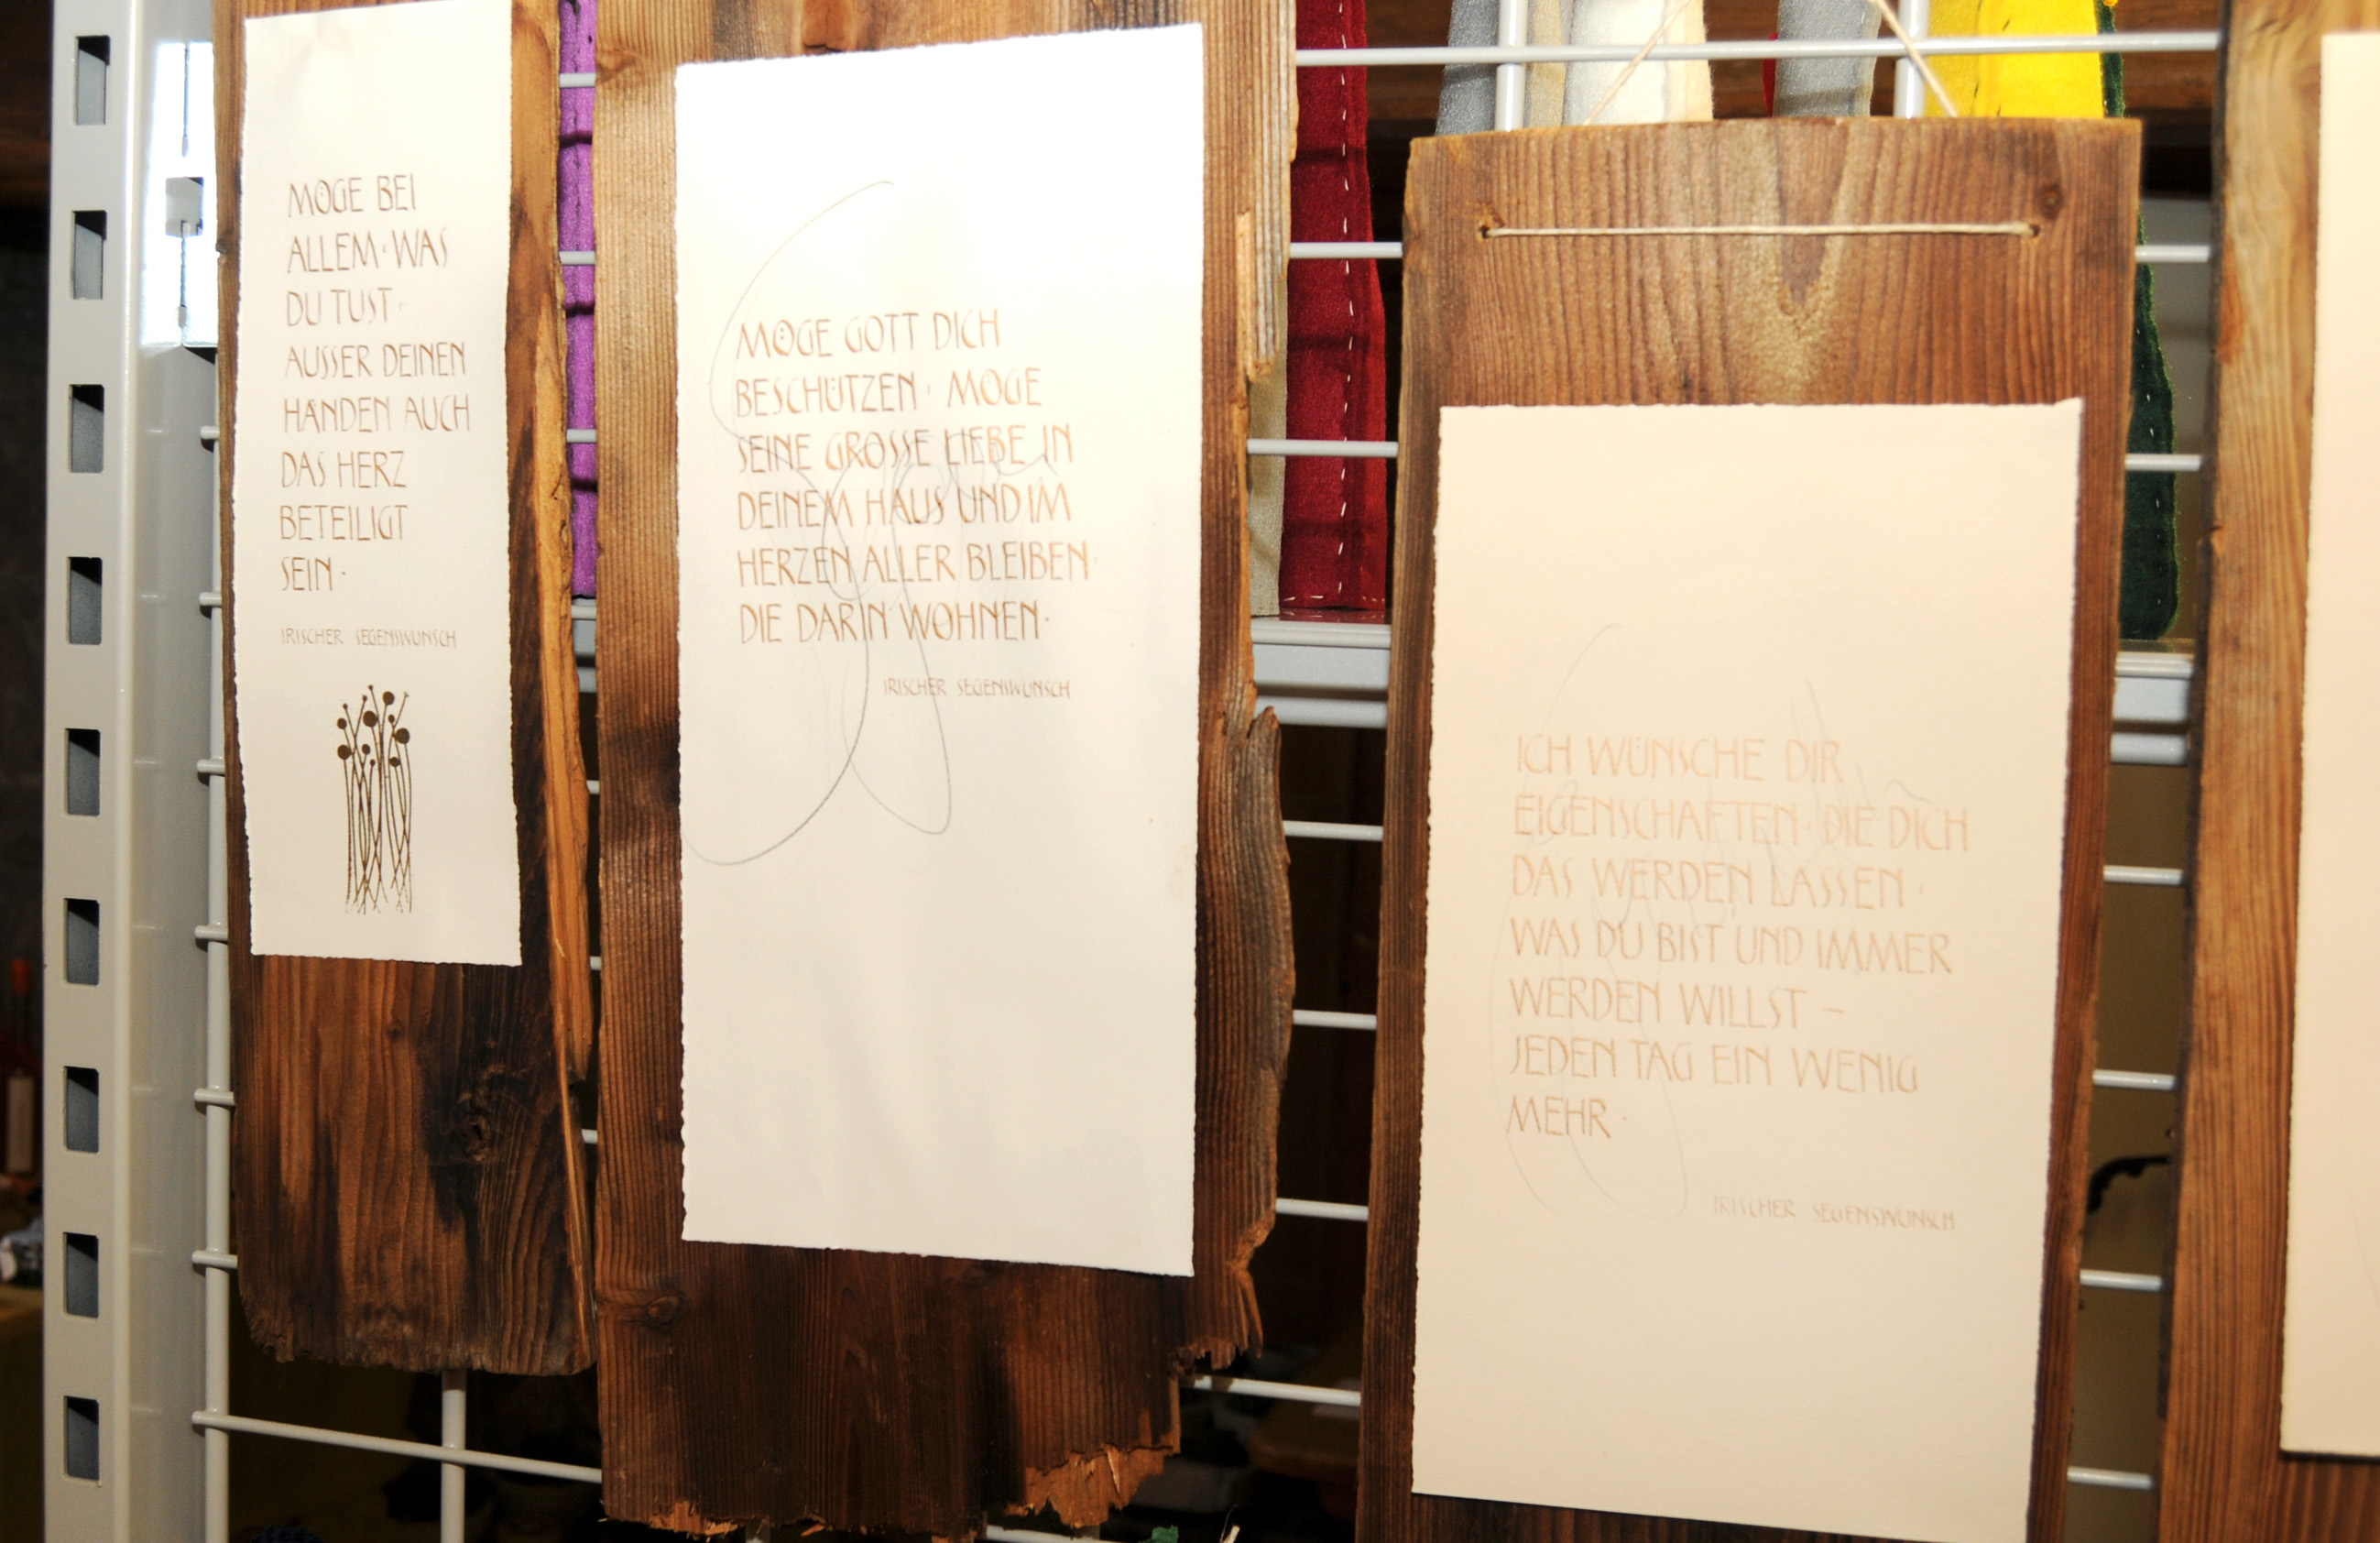 MÖGE BEI
ALLEM · WAS
DU TUST ·
AUSSER DEINEN
HÄNDEN AUCH
DAS HERZ
BETEILIGT
SEIN ·
IRISCHER SEGENSWUNSCH
MÖGE GOTT DICH
BESCHÜTZEN · MÖGE
SEINE GROSSE LIEBE IN
DEINEM HAUS UND IM
HERZEN ALLER BLEIBEN ·
DIE DARIN WOHNEN ·
IRISCHER SEGENSWUNSCH
ICH WÜNSCHE DIR
EIGENSCHAFTEN · DIE DICH
DAS WERDEN LASSEN ·
WAS DU BIST UND IMMER
WERDEN WILLST –
JEDEN TAG EIN WENIG
MEHR ·
IRISCHER SEGENSWUNSCH